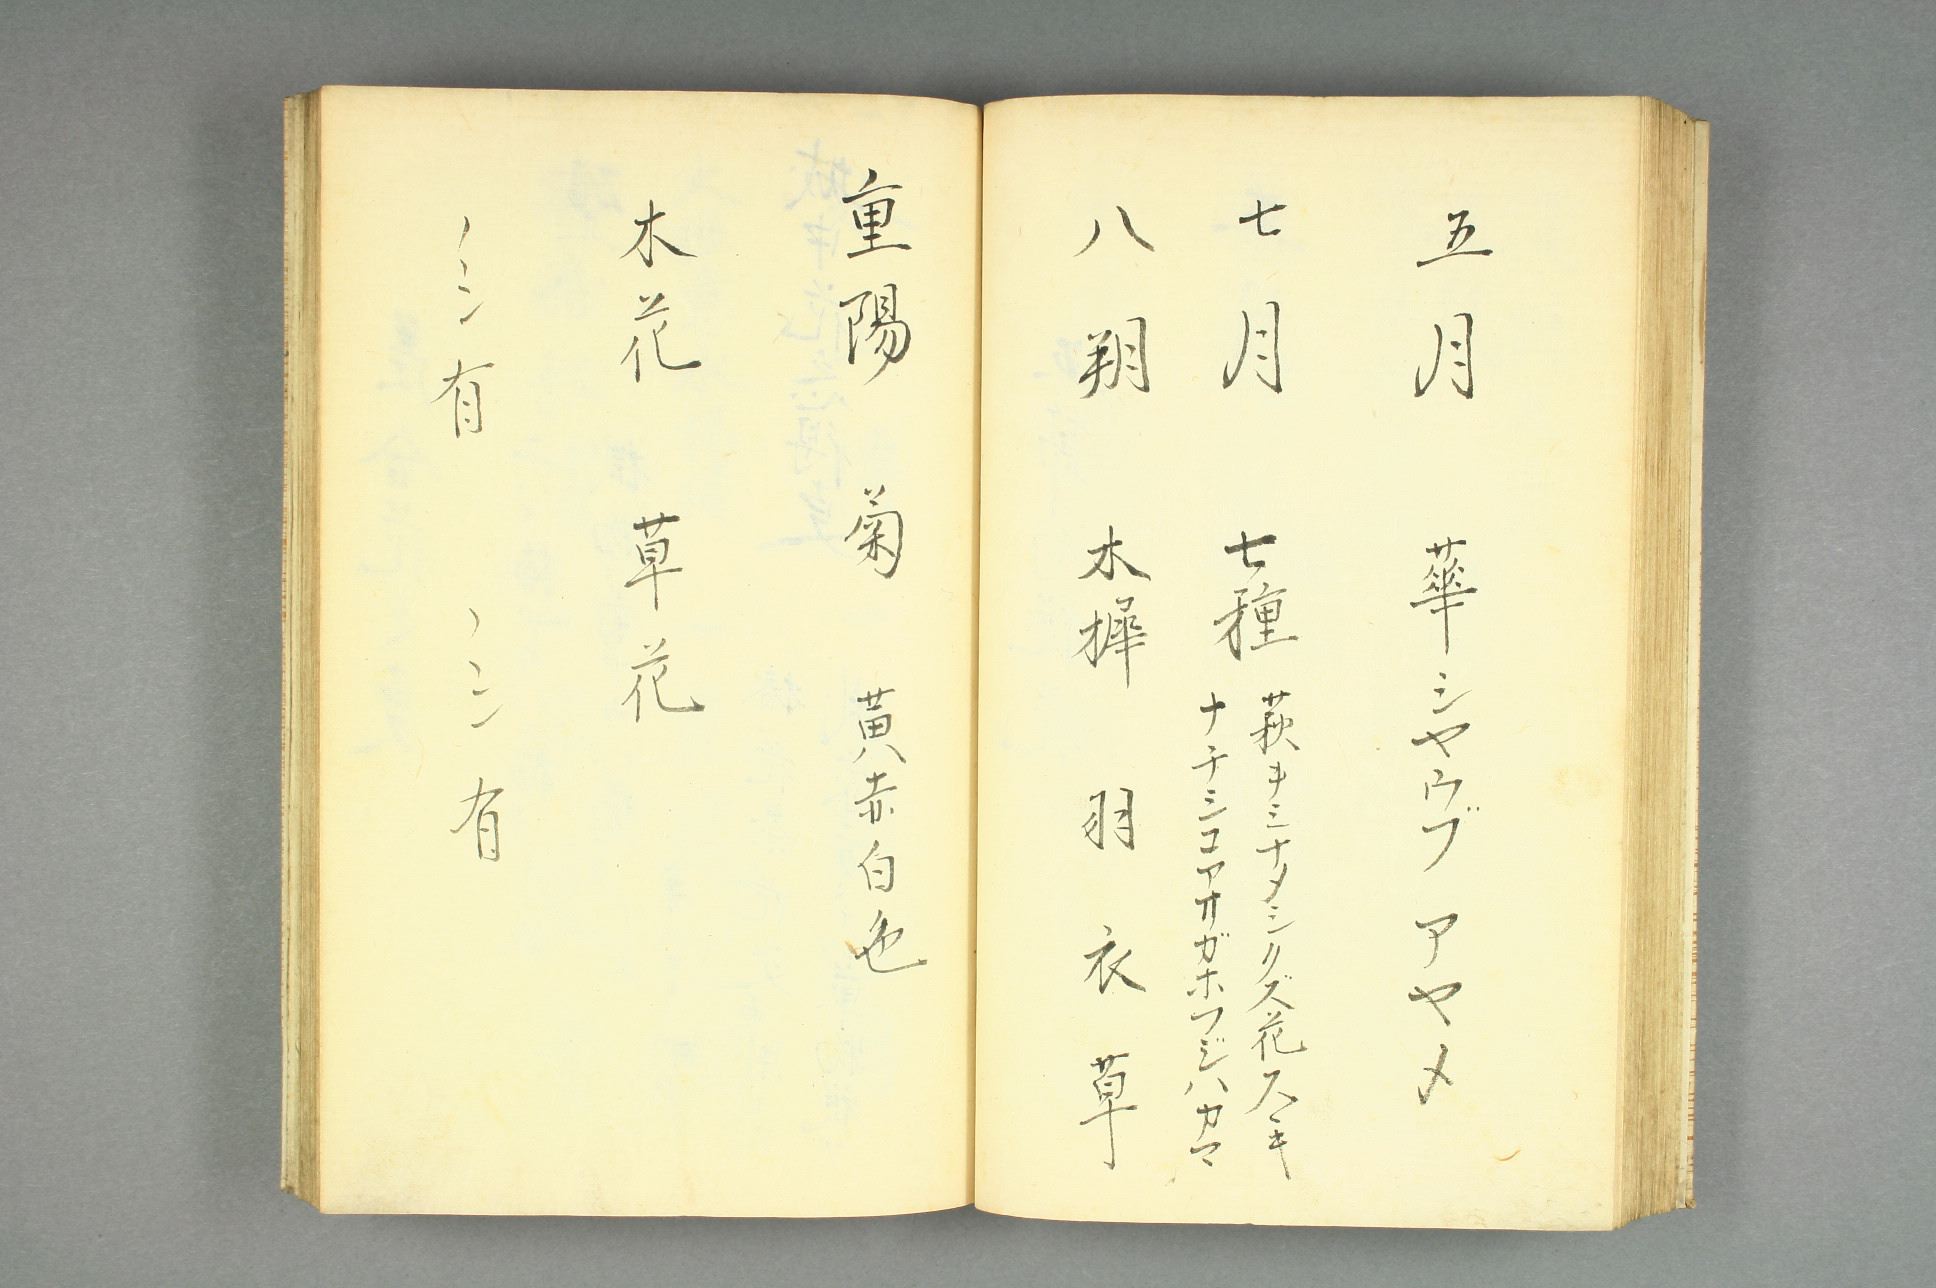 五月 華シヤウブ アヤメ
七月 七種 萩ヲミナメシクズ花スヽキ
ナテシコアサガホフジハカマ
八朔 木樨 羽衣草
重陽 菊 黄赤白色
木花 草花
ノシ有 ノシ有